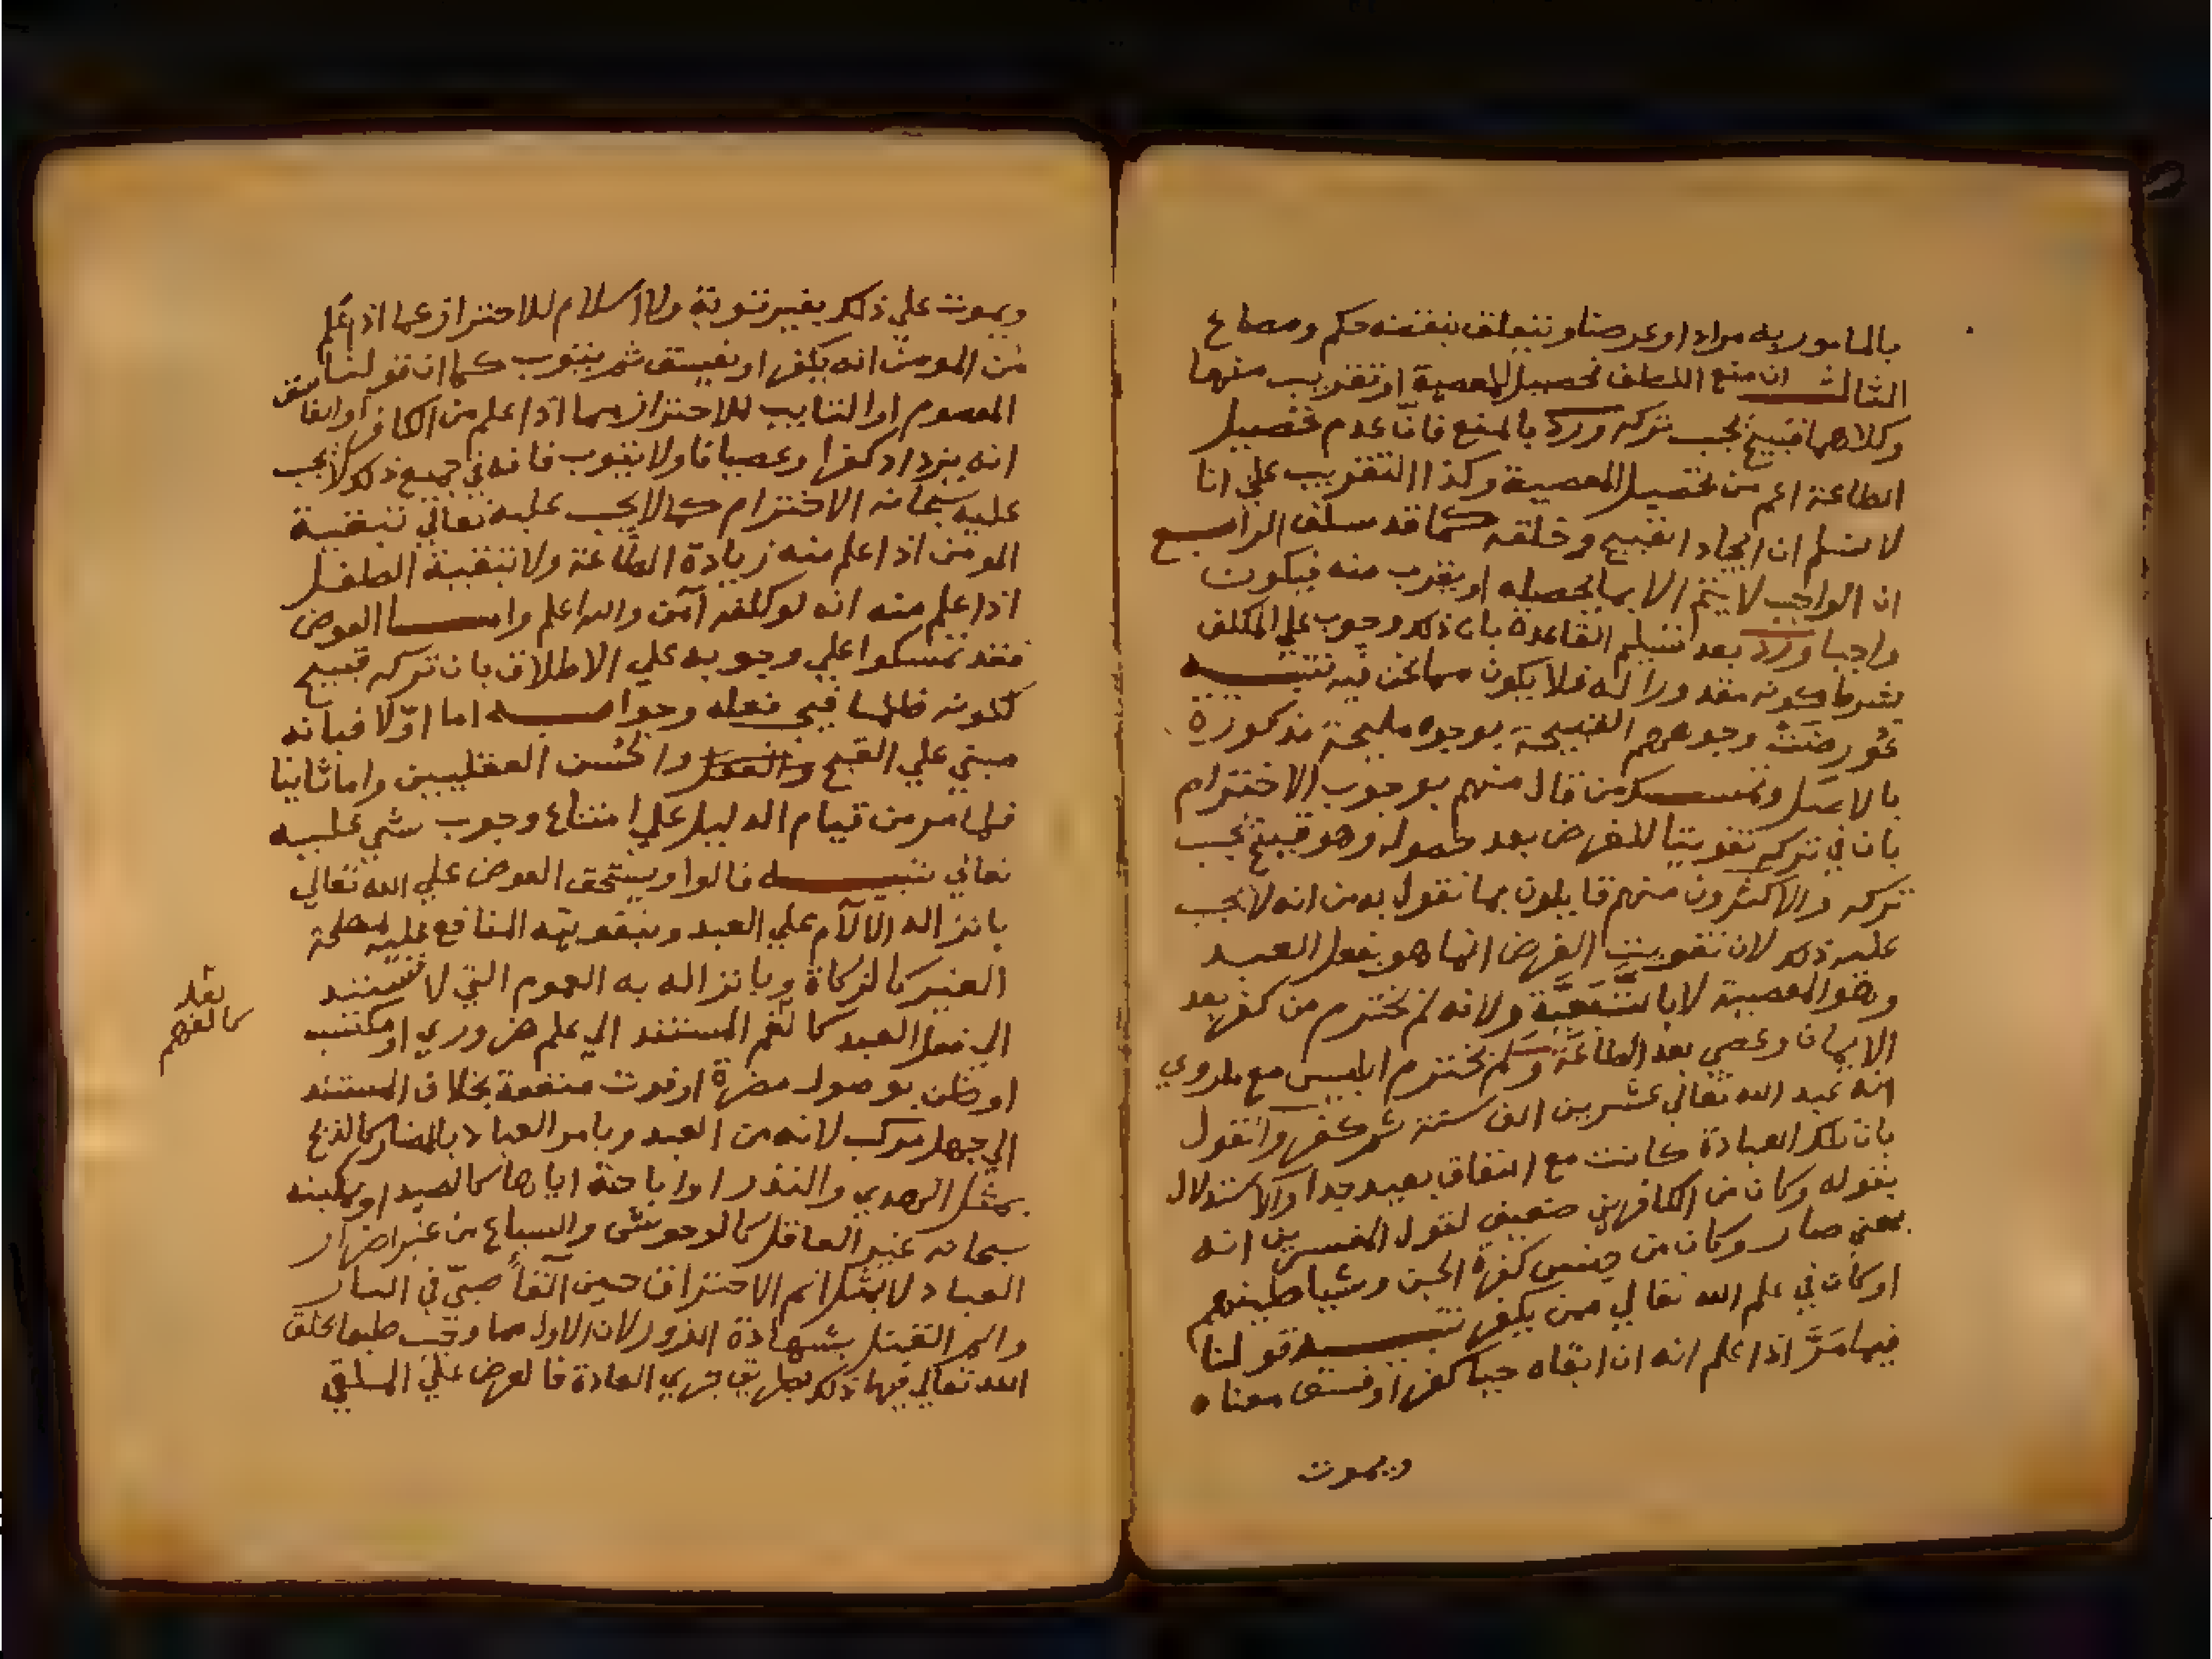 بالمامور به مرادا وغرضا وتتعلق بنقضه حكم ومصالح
الثالث ان منع اللطف تحصيل للمعصية او تقريب منها
وكلاهما قبيح يجب تركه ورد بالمنع فان عدم تحصيل
الطاعة اعم من تحصيل المعصية وكذا التقريب علي انا
لا نسلم ان ايجاد القبيح وخلقه كما قد سلف الرابع
ان الواجب لا يتم الا بما يحصله او يقرب منه فيكون
واجبا ورد بعد تسليم القاعدة بان ذلك وجوب علي المكلف
بشرط كونه مقدورا له فلا يكون مما نحن فيه تنبيه
عورضت وجوههم القبيحة بوجوه مليحة مذكورة
بالاصل وتمسك من قال منهم بوجوب الاخترام
بان في تركه تفويتا للغرض بعد حصوله وهو قبيح يجب
تركه والاكثرون منهم قايلون بما نقول به من انه لا يجب
عليه ذلك لان تفويت الغرض انما هو بفعل العبد
وهو المعصية لا بالتبقية ولانه لم يخترم من كفر بعد
الايمان وعصي بعد الطاعة ولم يخترم ابليس مع ما روي
انه عبد الله تعالي عشرين الف سنة ثم كفر والقول
بان تلك العبادة كانت مع النفاق بعيد جدا والاستدلال
بقوله وكان من الكافرين ضعيف لقول المفسرين انه
بمعني صار وكان من جنس كفرة الجن وشياطينهم
او كان في علم الله تعالي ممن يكفر تنبيه قولنا
فيما مر اذا علم انه ان ابقاه حيا كفر او فسق معناه
ويموت
ويموت علي ذلك بغير توبة ولا اسلام للاحتراز عما اذا علم
من المومن انه يكفر او يفسق ثم يتوب كما ان قولنا
المعصوم او التايب للاحتراز مما اذا علم من الكافر او الفاسق
انه يزداد كفرا وعصيانا ولا يتوب فانه في جميع ذلك لا يجب
عليه سبحانه الاخترام كما لا يجب عليه تعالي تبقية
المومن اذا علم منه زيادة الطاعة ولا تبقية الطفل
اذا علم منه انه لو كلفه آمن والله اعلم واما العوض
فقد تمسكوا علي وجوبه علي الاطلاق بان تركه قبيح
لكونه ظلما فيجب فعله وجوابه اما اولا فبانه
مبني علي القبح والحسن العقليين واما ثانيا
فلما مر من قيام الدليل علي امتناع وجوب شي عليه
تعالي تنبيه قالوا ويستحق العوض علي الله تعالي
بانزاله الآلام علي العبد وبتفويته المنافع عليه لمصلحة
الغير كالزكاة وبانزاله به الهموم التي لا تستند
الي فعل العبد كالغم المستند الي علم ضروري او مكتسب
او ظن بوصول مضرة او فوت منفعة بخلاف المستند
الي جهل مركب لانه من العبد وبامر العباد بالمضار كالذبح
بمثل الهدي والنذر او اباحة اياها كالصيد او بتمكينه
سبحانه غير العاقل كالوحوش والسباع من غير اضرار
العباد لا بمثل الم الاحتراق حين القاء صبي في النار
والم القتل بشهادة الزور لان الاول مما وجب طبعا بخلق
الله تعالي فيها ذلك بطريق جري العادة فالعوض علي الملقي